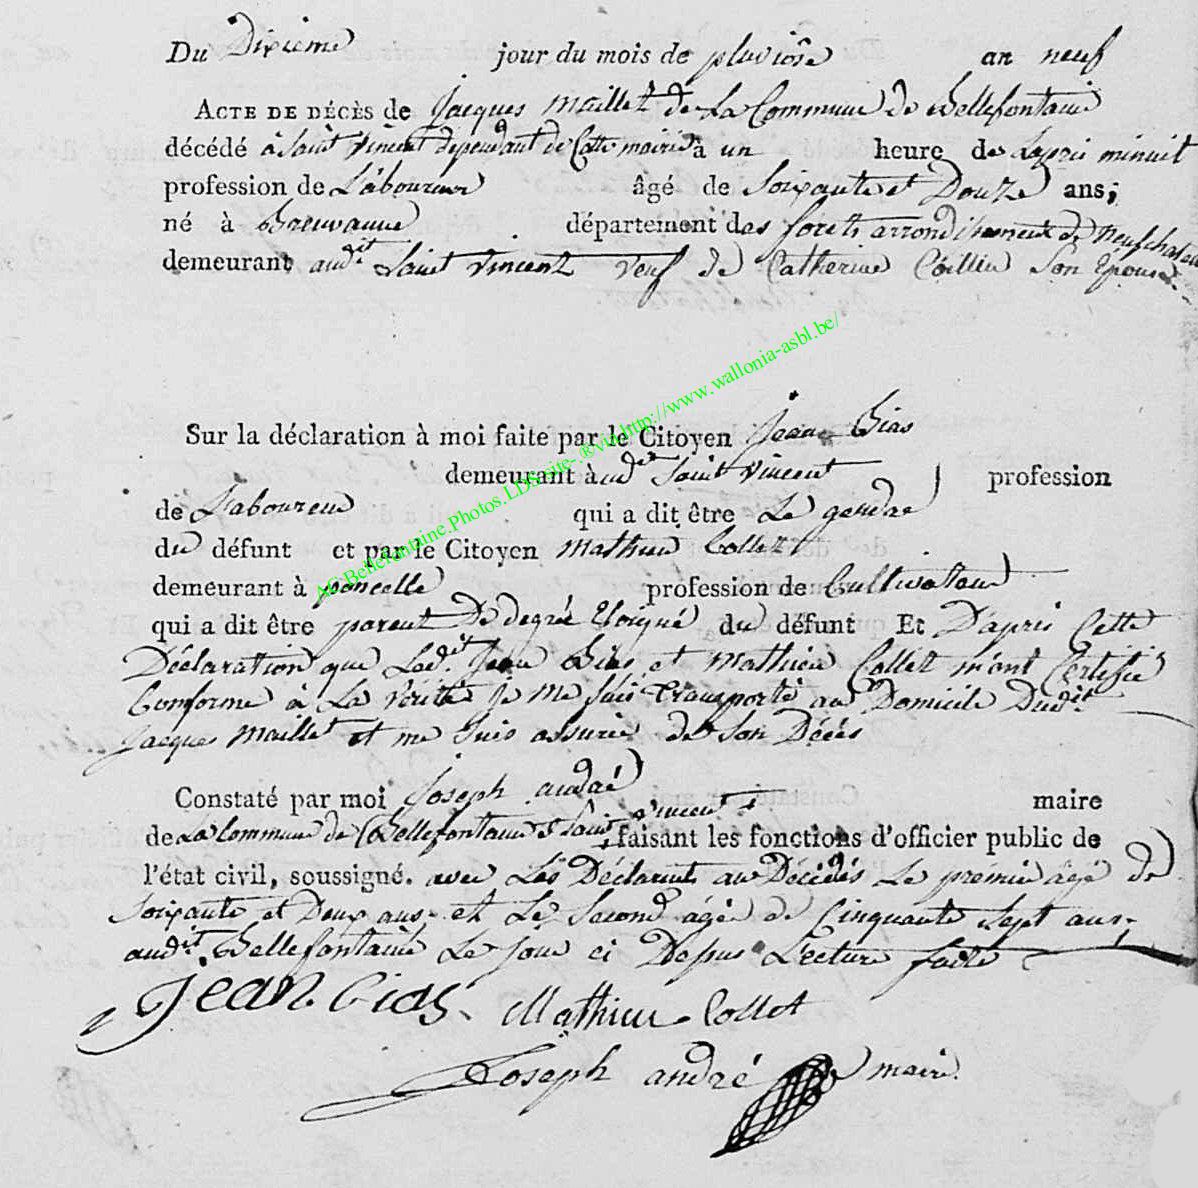 Du Dixieme jour du mois de pluviôse an neuf
ACTE DE DÉCÈS de Jacques Maillet de La Commune de Bellefontaine
décédé à Saint Vincent dependant de Cette mairie à un heure de Lapres minuit
profession de Laboureur âgé de Soixante et Douze ans;
né à Breuvanne département des forets arrondissement de Neufchateau
demeurant audit Saint Vincent veuf de Catherine Son Epouse.
AC-Bellefontaine.Photos.LDS.site-.®via.http://www.wallonia-asbl.be/
Sur la déclaration à moi faite par le Citoyen Jean Gias
demeurant à udit Saint Vincent profession
de Laboureur qui a dit être Le gendre
du défunt et par le Citoyen Mathieu Collet
demeurant à poncelle profession de Cultivateur
qui a dit être parent De degrée Eloigné du défunt Et D'apres Cette
Déclaration que Ledit Jean Gias et Mathieu Collet m'ont Certifié
Conforme à La vérité Je me suis transporté au Domicile Dudit
Jacques Maillet et me suis assurée de Son Décès
Constaté par moi Joseph andré maire
de La Commune de Bellefontaine St Vincent faisant les fonctions d'officier public de
l'état civil, soussigné. avec Les Déclarants Le premier âgé de
Soixante et Deux ans, et Le Second âgée de Cinquante Sept ans,
audit Bellefontaine Le Jour ci Lecture faite
Jean Gias Mathieu Collet
Joseph andré maire.